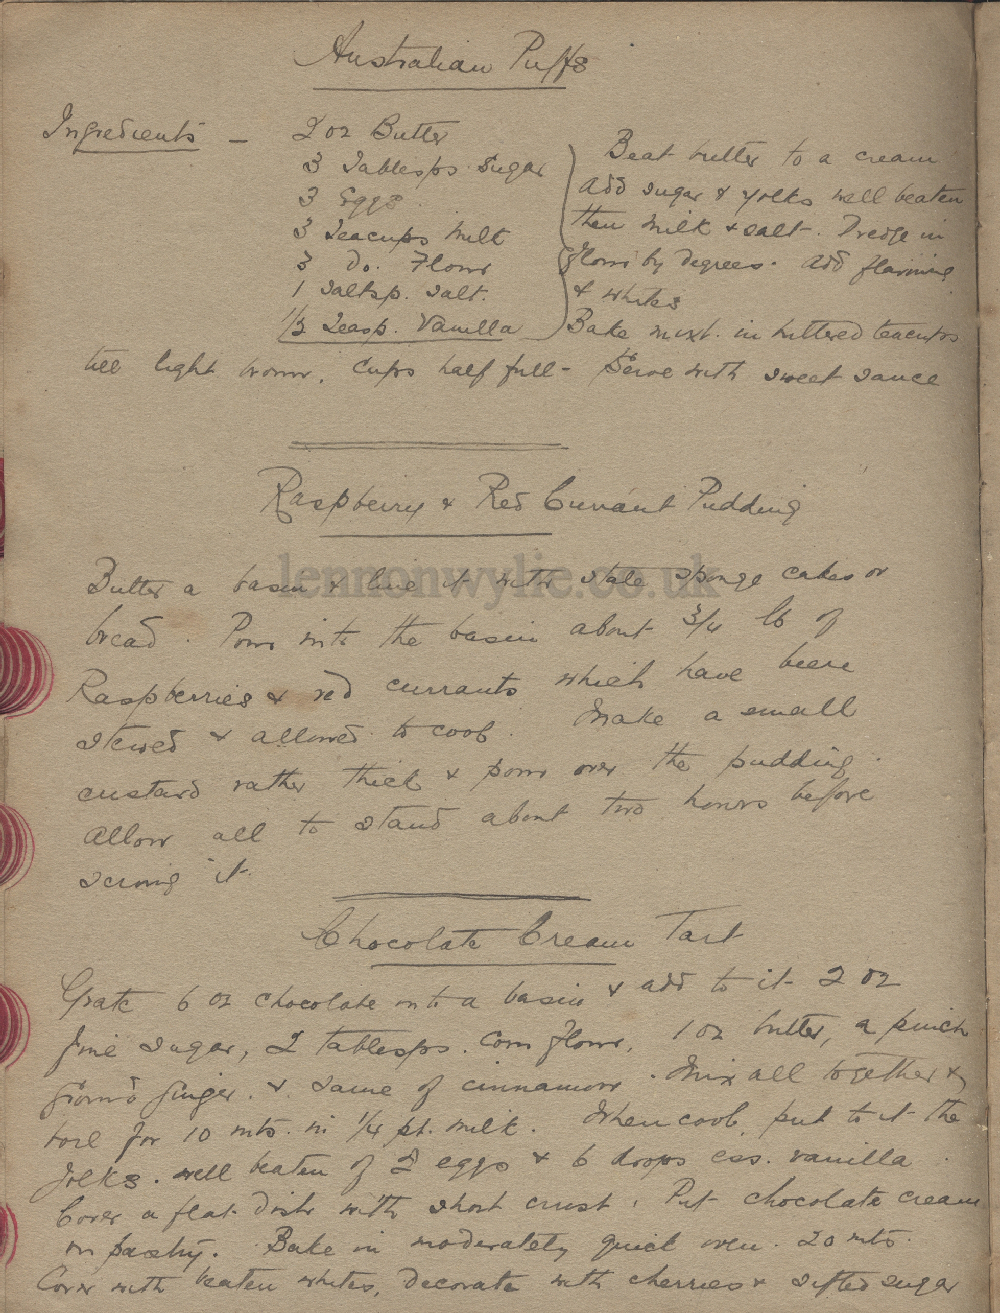 Australian Puffs
Ingredients - 2 oz Butter
3 Tablesps Sugar
3 Eggs
3 Teacups Milk
3 Do. Flour
1 Saltsp. Salt.
1/2 Teasp. Vanilla
Beat butter to a cream
Add sugar & yolks well beaten
then milk & salt. Dredge in
flour by degrees. Add flavouring
& whites
Bake mixt. in buttered teacups
till light brown. Cups half full - Serve with sweet sauce
Raspberry & Red Currant Pudding
lennonwylie.co.uk
Butter a basin & line it with stale sponge cakes or
bread. Pour into the basin about 3/4 lb of
Raspberries & red currants which have been
stewed & allowed to cool. Make a small
custard rather thick & pour over the pudding.
Allow all to stand about two hours before
serving it.
Chocolate Cream Tart
Grate 6 oz chocolate into a basin & add to it 2 oz
fine sugar, 2 tablesps. corn flour, 1 oz butter, a pinch
ground ginger. & same of cinnamon. Mix all together &
boil for 10 mts. in 1/4 pt. milk. When cool, put to it the
yolks. well beaten of 2 eggs & 6 drops ess. vanilla.
Cover a flat dish with short crust. Put chocolate cream
on pastry. Bake in moderately quick oven. 20 mts.
Cover with beaten whites, decorate with cherries & sifted sugar